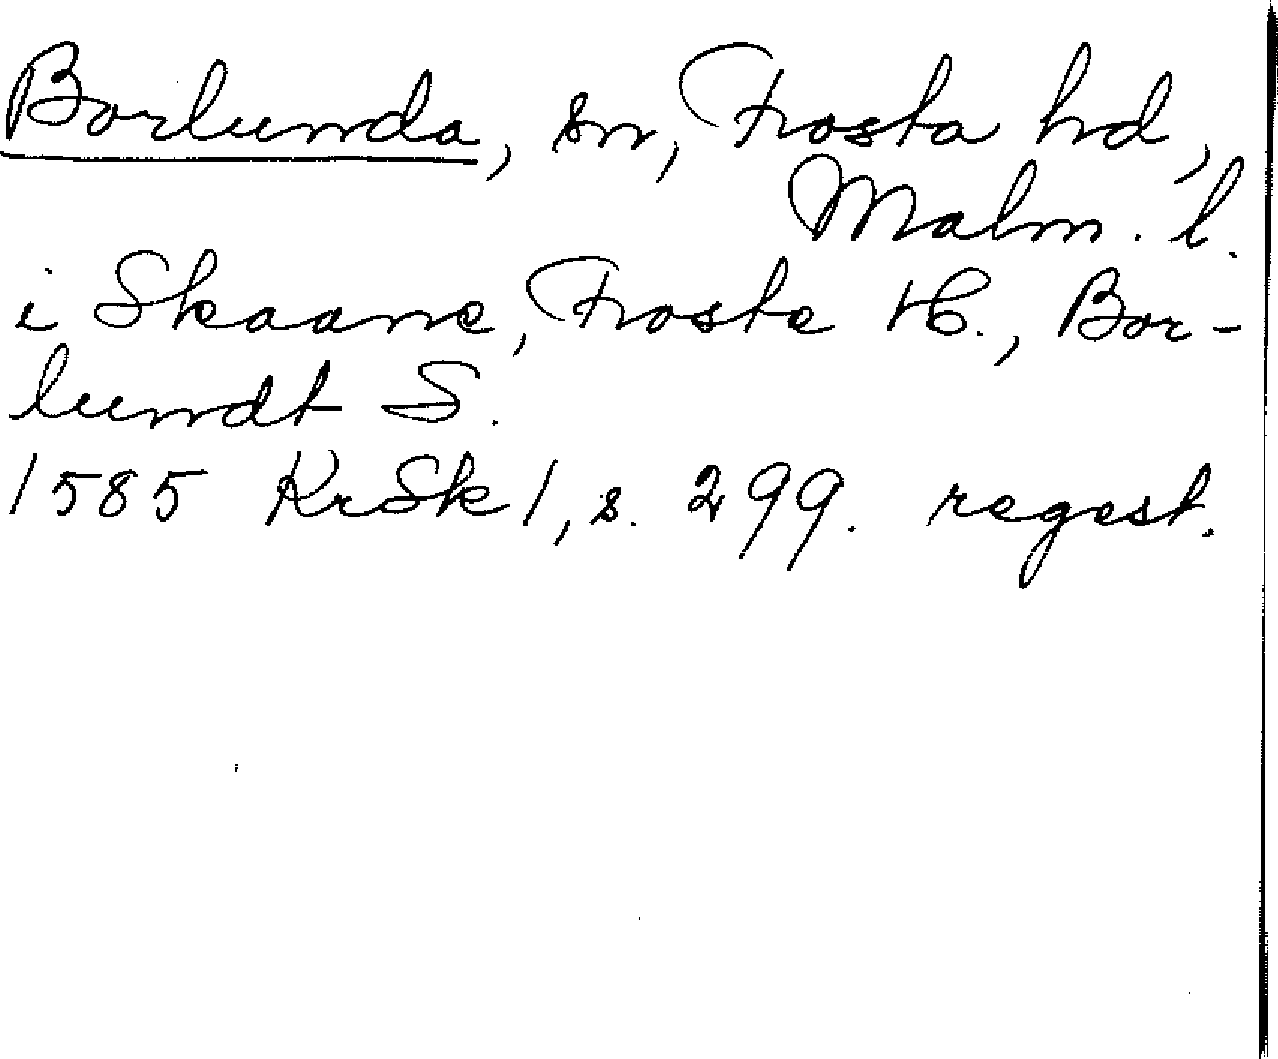 Borlunda, sn, Frosta hd,
Malm. l.
i Skaane, Froste H., Bor-
lundt S.
1585 KrSk 1, s. 299. regest.